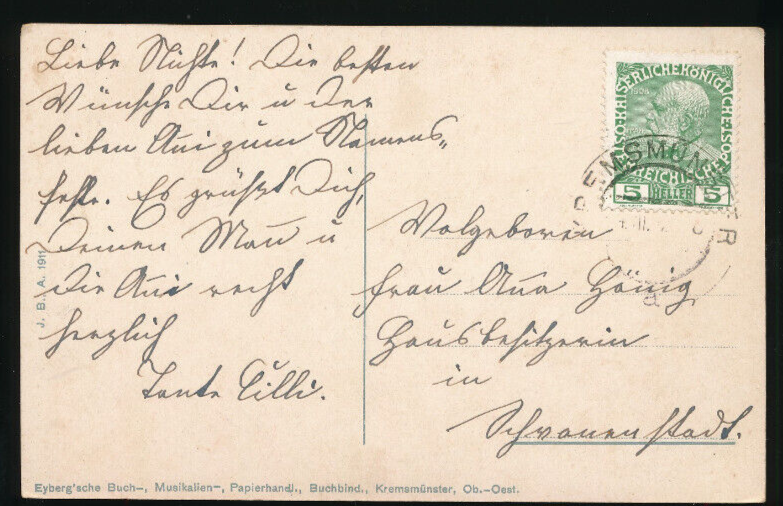 Liebe Nichte! Die besten
Wünsche Dir u der
lieben Ani zum Namens„
feste. Es grüßt Dich,
Deinen Mann u
die Ani recht
herzlich
Tante Cilli.
Wolgeboren
Frau Ana Hönig
Hausbesitzerin
in
Schwanenstadt.
KAISERLICHE KÖNIGLICHE
ÖSTERREICHISCHE
1908
5 HELLER 5
KREMSMÜNSTER
J. B. A. 1911
Eyberg'sche Buch-, Musikalien-, Papierhandl., Buchbind., Kremsmünster, Ob.-Oest.